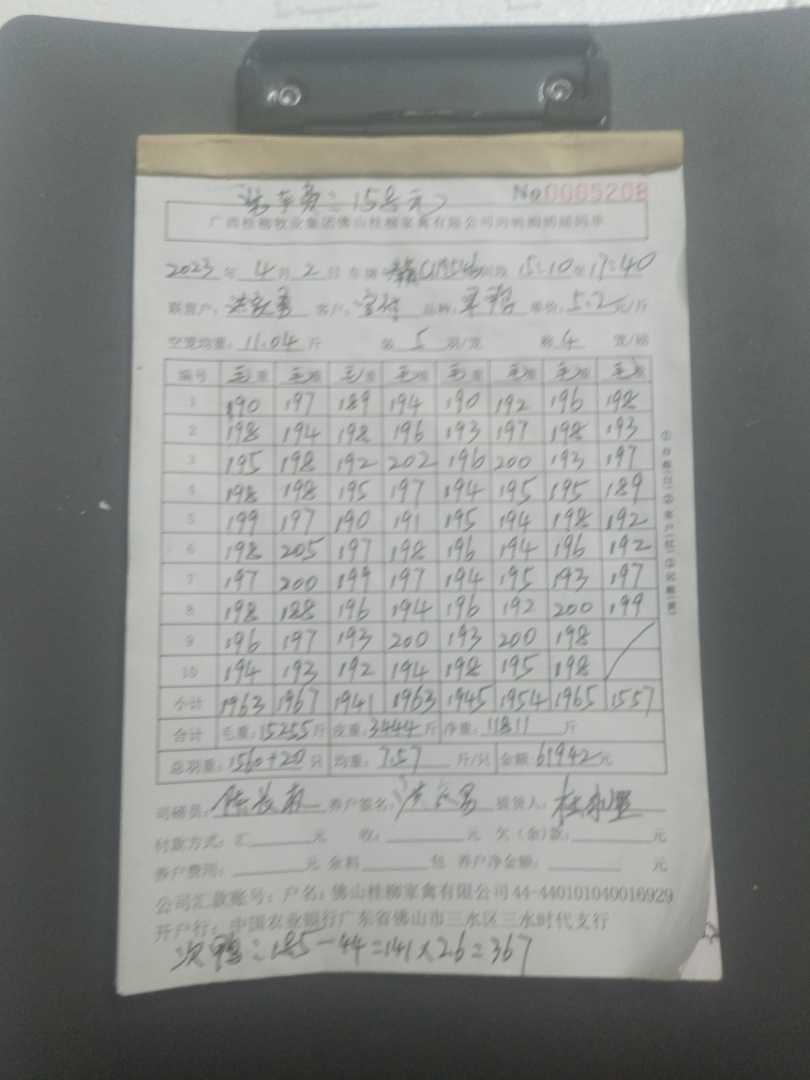 No 0005208
广西桂柳牧业集团佛山桂柳家禽有限公司肉鸭购销磅码单
2023 年 4 月 2 日 车辆 时段 15:10 至 17:40
客户: 单价: 5.2 元/斤
空笼均重: 11.04 斤 装 5 只/笼 称 4 笼/磅
编号 毛重 毛重 毛重 毛重 毛重 毛重 毛重 毛重
1 190 197 189 194 190 192 196 198
2 198 194 198 196 193 197 198 193
3 195 198 192 202 196 200 193 197
4 198 198 195 197 194 195 195 189
5 199 197 190 191 195 194 198 192
6 198 205 197 198 196 194 196 192
7 197 200 199 197 194 195 193 197
8 198 188 196 194 196 192 200 199
9 196 197 193 200 193 200 198
10 194 193 192 194 198 195 198
小计 1963 1967 1941 1963 1945 1954 1965 1557
合计 毛重: 15255 斤 皮重: 3444 斤 净重: 11811 斤
1560+20 只 均重: 7.57 斤/只 金额 61942 元
司磅员: 养户签名: 提货人:
付款方式: 汇 元 收: 元 欠(余)款: 元
养户费用: 元 余料 包 养户净金额: 元
公司汇款账号: 户名: 佛山桂柳家禽有限公司 44-440101040016929
开户行: 中国农业银行广东省佛山市三水区三水时代支行
次鸭: 185-44=141×2.6=367